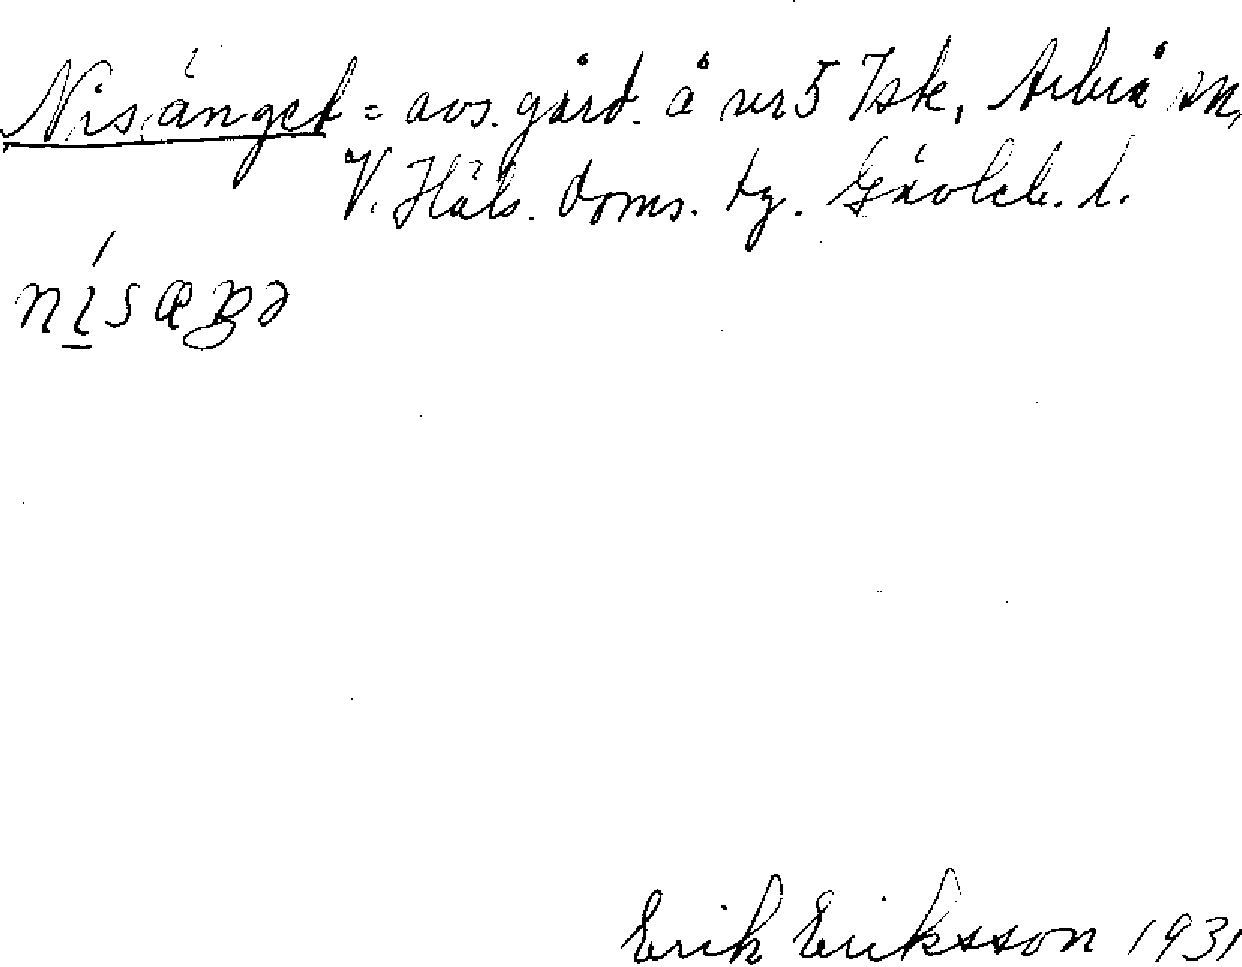 Nisänget = avs. gård. å nr 5 Isk, Arbrå sn,
V. Häls. doms. tg. Gävleb. l.
nísæŋə
Erik Eriksson 1931